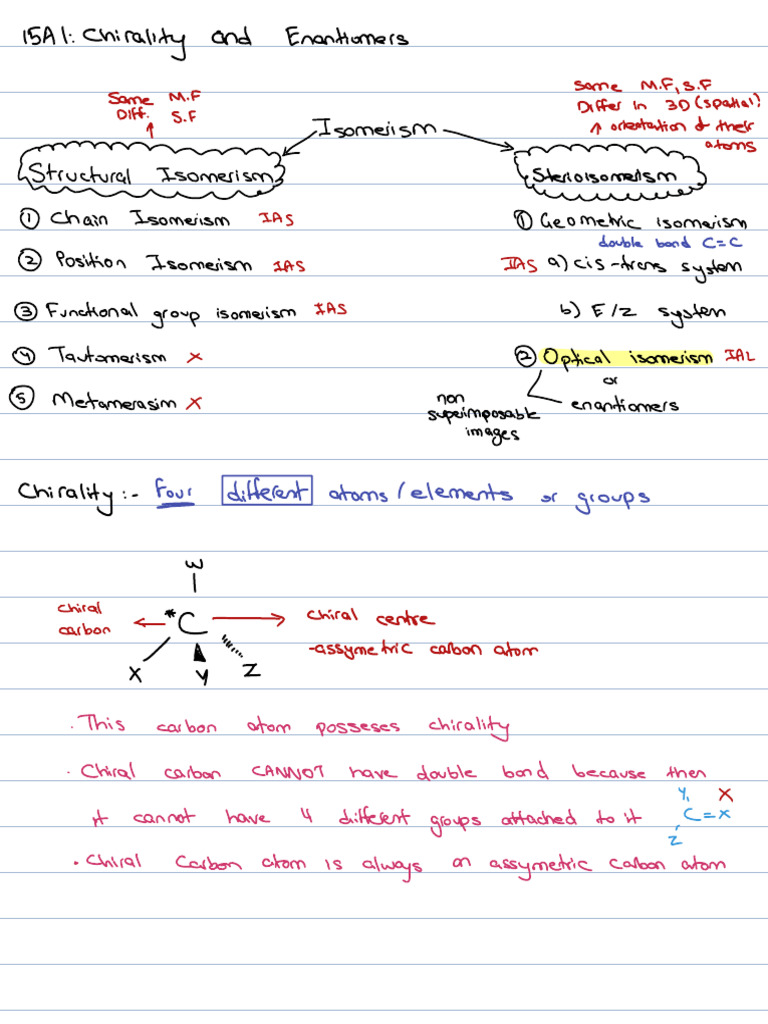 15A1: Chirality and Enantiomers
Same M.F
Diff. S.F
Same M.F, S.F
Differ in 3D (spatial)
orientation of their
atoms
Isomerism
Structural Isomerism
Sterioisomerism
① Chain Isomerism IAS
② Position Isomerism IAS
③ Functional group isomerism IAS
④ Tautomerism X
⑤ Metamerasim X
① Geometric isomerism
double bond C=C
IAS a) cis-trans system
b) E/Z system
② Optical isomerism IAL
or
enantiomers
non
superimposable
images
Chirality :- Four different atoms/elements or groups
W
chiral
carbon
*C
X Y Z
chiral centre
-assymetric carbon atom
. This carbon atom posseses chirality
. Chiral carbon CANNOT have double bond because then
it cannot have 4 different groups attached to it
Y X
C=X
Z
. Chiral Carbon atom is always an assymetric carbon atom